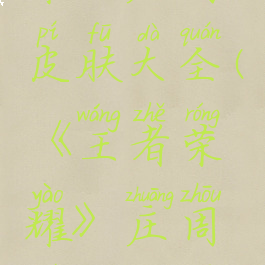 pí fū dà quán
皮肤大全(
wáng zhě róng
《王者荣
yào zhuāng zhōu
耀》庄周